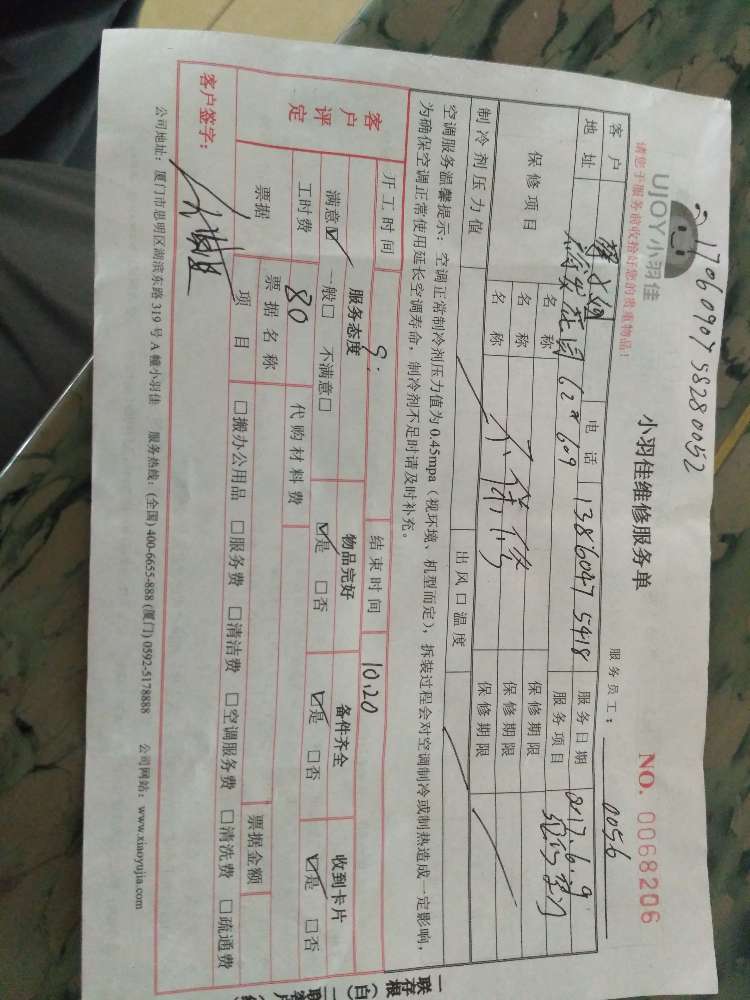 1706090758280052
UJOY小羽佳
小羽佳维修服务单
NO. 0068206
请您于服务前收拾好您的贵重物品！
服务员工： 0056
客户 电话 13860475418 服务日期 2017.6.9
地址 62#609 服务项目
保修项目 名称 不保修 保修期限
名称 保修期限
名称 保修期限
制冷剂压力值 出风口温度
空调服务温馨提示：空调正常制冷剂压力值为0.45mpa（视环境、机型而定），拆装过程会对空调制冷或制热造成一定影响，
为确保空调正常使用延长空调寿命，制冷剂不足时请及时补充。
客户评定
开工时间 9: 结束时间 10:20
服务态度 物品完好 备件齐全 收到卡片
满意☑ 一般□ 不满意□ ☑是 □否 ☑是 □否 ☑是 □否
工时费 80 代购材料费
票据 票据名称 票据金额
项目 □搬办公用品 □服务费 □清洁费 □空调服务费 □清洗费 □疏通费
客户签字：
公司地址：厦门市思明区湖滨东路319号A幢小羽佳 服务热线：(全国) 400-6655-888 (厦门) 0592-5178888 公司网站：www.xiaoyujia.com
一联存根（白）